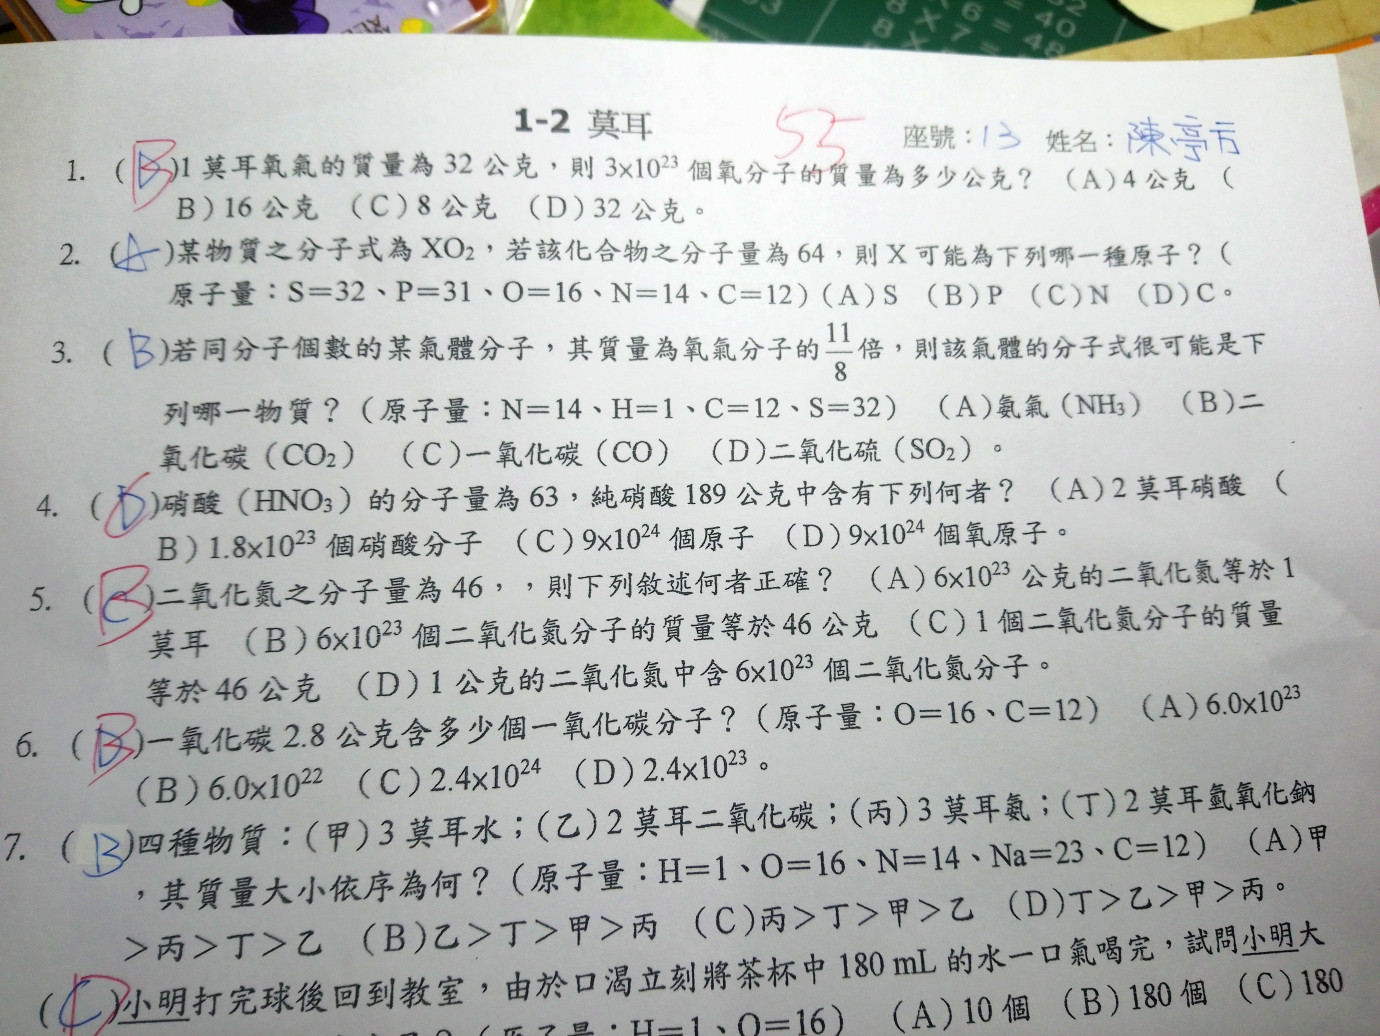 32
× 6 = 40
8 × 7 = 48
8 ×
1-2 莫耳 55 座號：13 姓名：陳亭方
1. (B)1 莫耳氧氣的質量為 32 公克，則 3×10²³ 個氧分子的質量為多少公克？ （A）4 公克 （
B）16 公克 （C）8 公克 （D）32 公克。
2. (A)某物質之分子式為 XO₂，若該化合物之分子量為 64，則 X 可能為下列哪一種原子？（
原子量：S＝32、P＝31、O＝16、N＝14、C＝12）（A）S （B）P （C）N （D）C。
3. (B)若同分子個數的某氣體分子，其質量為氧氣分子的 11/8 倍，則該氣體的分子式很可能是下
列哪一物質？（原子量：N＝14、H＝1、C＝12、S＝32） （A）氨氣（NH₃） （B）二
氧化碳（CO₂） （C）一氧化碳（CO） （D）二氧化硫（SO₂）。
4. (D)硝酸（HNO₃）的分子量為 63，純硝酸 189 公克中含有下列何者？ （A）2 莫耳硝酸 （
B）1.8×10²³ 個硝酸分子 （C）9×10²⁴ 個原子 （D）9×10²⁴ 個氧原子。
5. (B)二氧化氮之分子量為 46，，則下列敘述何者正確？ （A）6×10²³ 公克的二氧化氮等於 1
莫耳 （B）6×10²³ 個二氧化氮分子的質量等於 46 公克 （C）1 個二氧化氮分子的質量
等於 46 公克 （D）1 公克的二氧化氮中含 6×10²³ 個二氧化氮分子。
6. (B)一氧化碳 2.8 公克含多少個一氧化碳分子？（原子量：O＝16、C＝12） （A）6.0×10²³
（B）6.0×10²² （C）2.4×10²⁴ （D）2.4×10²³。
7. (B)四種物質：(甲)3 莫耳水；(乙)2 莫耳二氧化碳；(丙)3 莫耳氮；(丁)2 莫耳氫氧化鈉
，其質量大小依序為何？（原子量：H＝1、O＝16、N＝14、Na＝23、C＝12） （A）甲
＞丙＞丁＞乙 （B）乙＞丁＞甲＞丙 （C）丙＞丁＞甲＞乙 （D）丁＞乙＞甲＞丙。
(D)小明打完球後回到教室，由於口渴立刻將茶杯中 180 mL 的水一口氣喝完，試問小明大
（原子量：H＝1、O＝16） （A）10 個 （B）180 個 （C）180